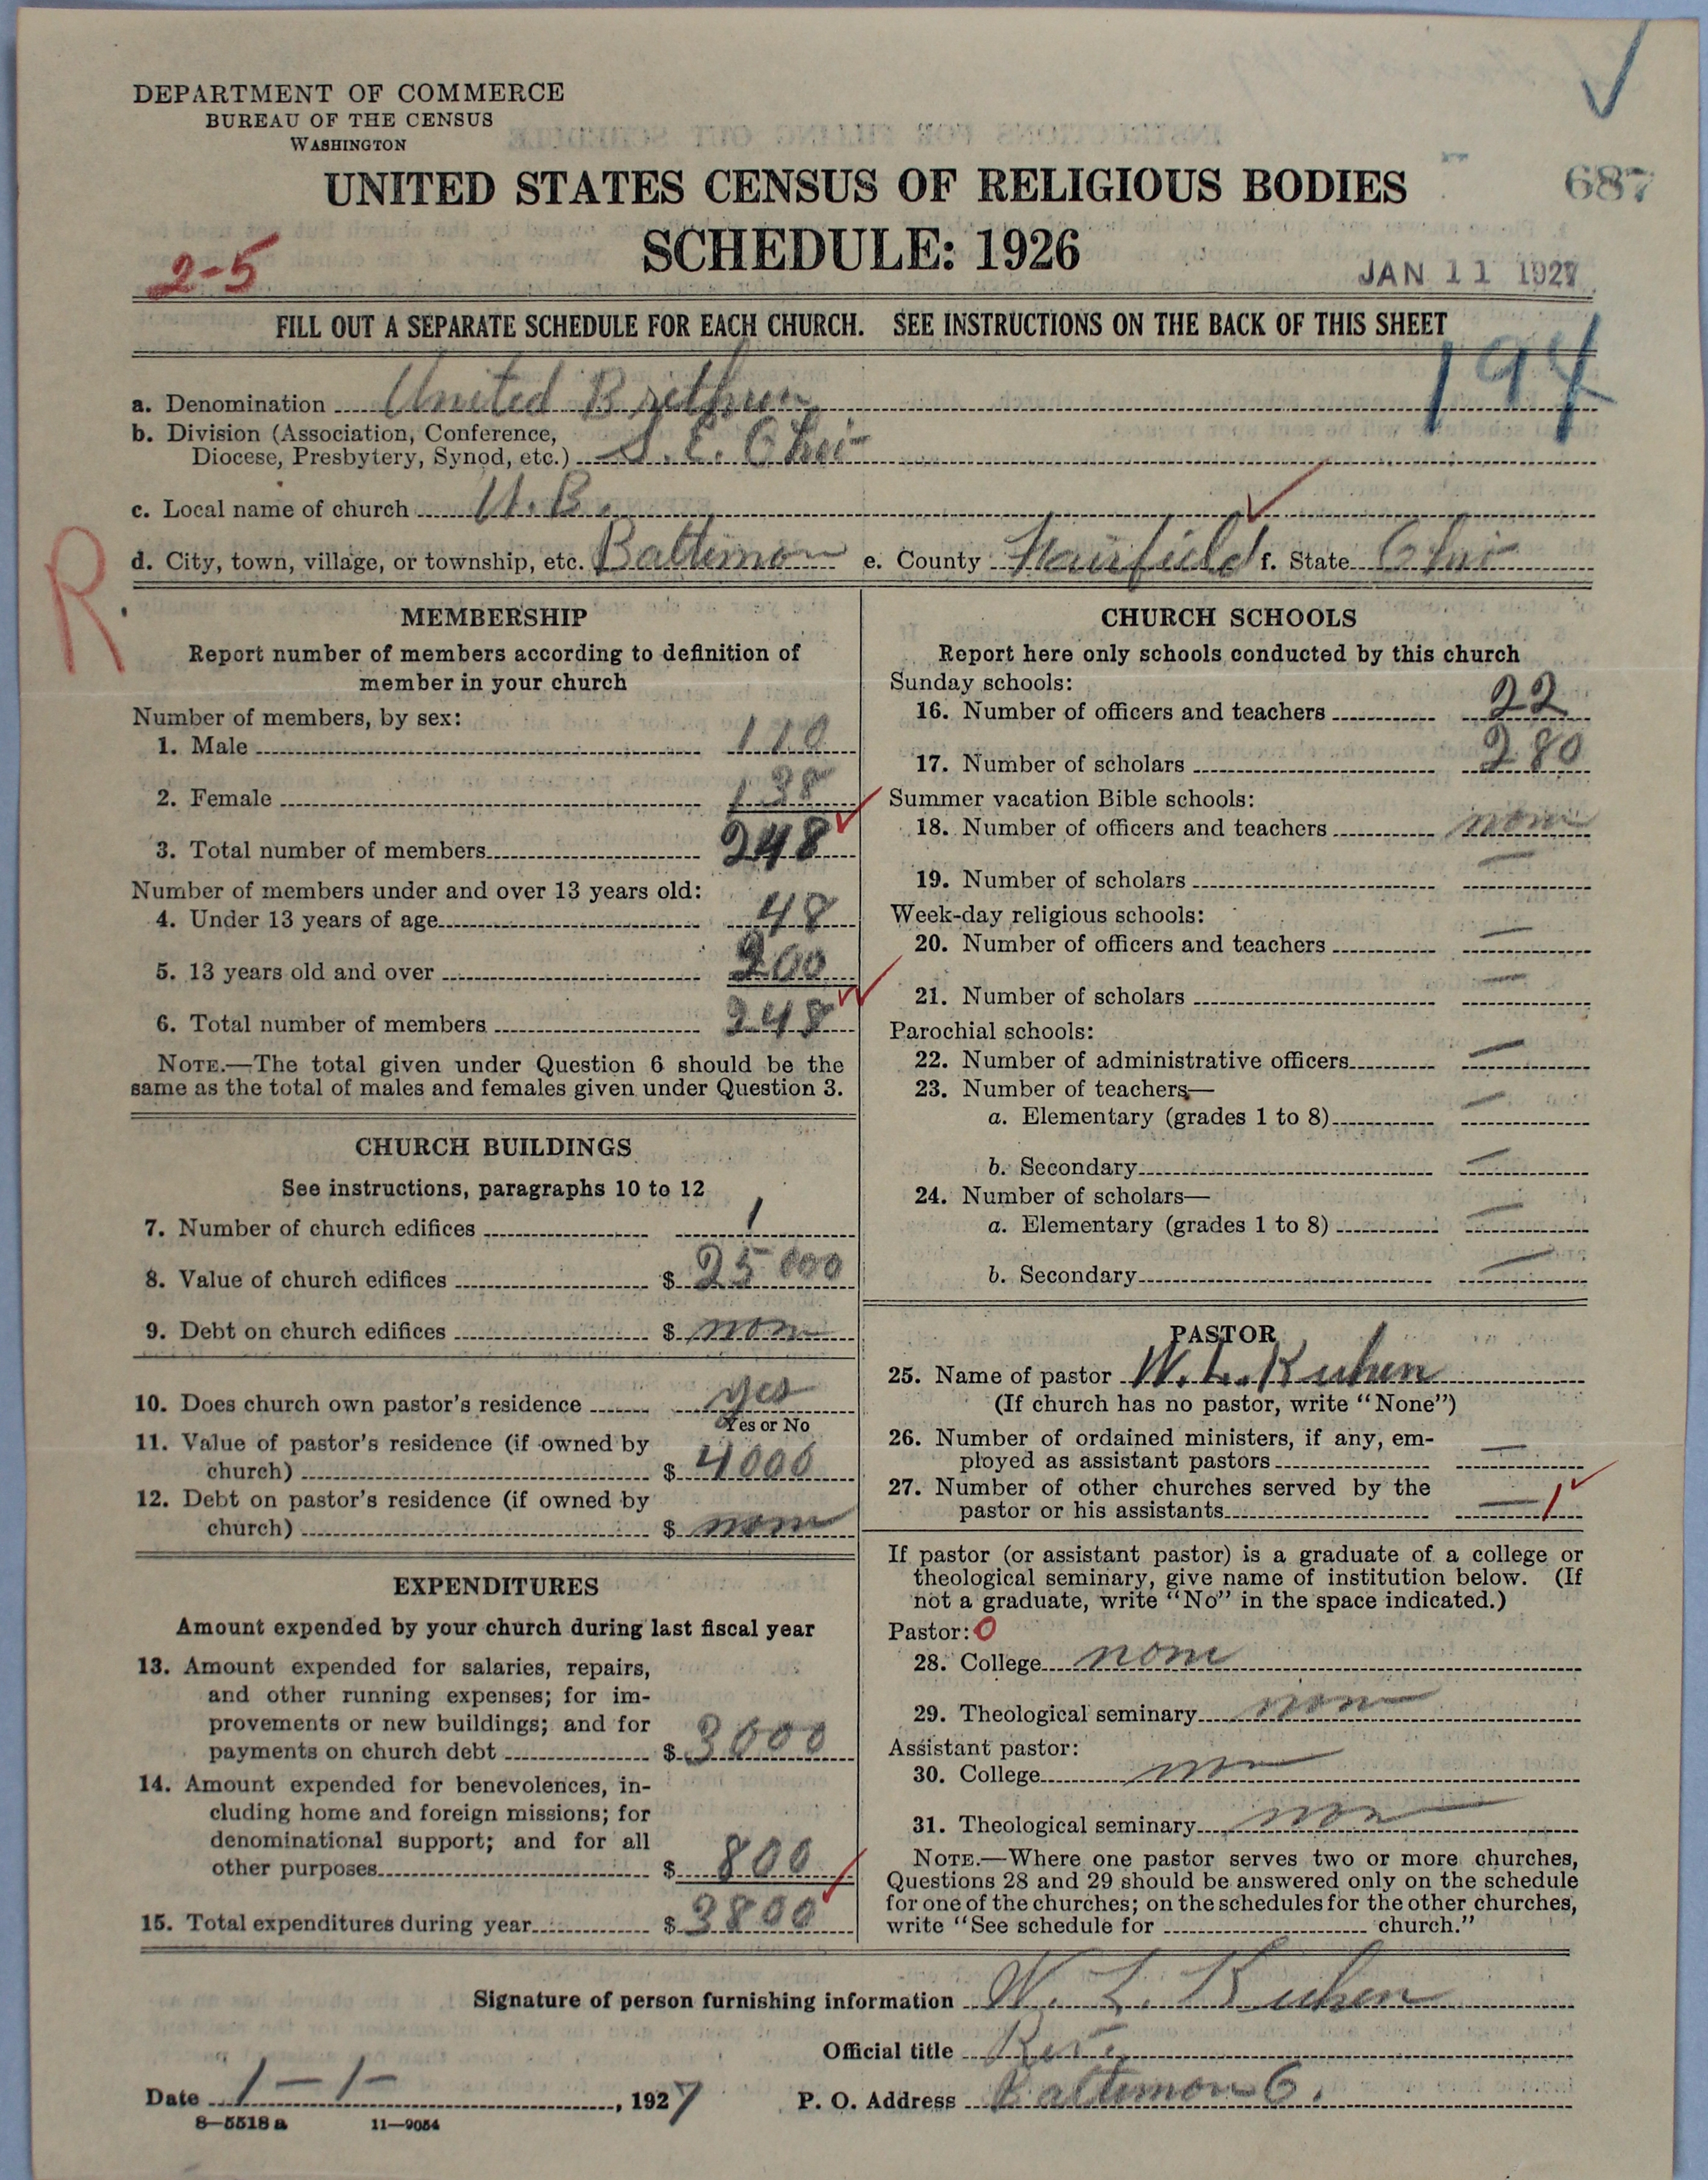 DEPARTMENT OF COMMERCE
BUREAU OF THE CENSUS
WASHINGTON
UNITED STATES CENSUS OF RELIGIOUS BODIES
687
SCHEDULE: 1926
2-5
JAN 11 1927
FILL OUT A SEPARATE SCHEDULE FOR EACH CHURCH. SEE INSTRUCTIONS ON THE BACK OF THIS SHEET
194
a. Denomination United Brethren
b. Division (Association, Conference,
Diocese, Presbytery, Synod, etc.) S. E. Ohio
c. Local name of church U. B.
d. City, town, village, or township, etc. Baltimore e. County Fairfield f. State Ohio
R.
MEMBERSHIP
Report number of members according to definition of
member in your church
Number of members, by sex:
1. Male 110
2. Female 138
3. Total number of members 248
Number of members under and over 13 years old:
4. Under 13 years of age 48
5. 13 years old and over 200
6. Total number of members 248
NOTE.—The total given under Question 6 should be the
same as the total of males and females given under Question 3.
CHURCH BUILDINGS
See instructions, paragraphs 10 to 12
7. Number of church edifices 1
8. Value of church edifices $ 25000
9. Debt on church edifices $ none
10. Does church own pastor's residence yes
Yes or No
11. Value of pastor's residence (if owned by
church) $ 4000
12. Debt on pastor's residence (if owned by
church) $ none
EXPENDITURES
Amount expended by your church during last fiscal year
13. Amount expended for salaries, repairs,
and other running expenses; for im-
provements or new buildings; and for
payments on church debt $ 3000
14. Amount expended for benevolences, in-
cluding home and foreign missions; for
denominational support; and for all
other purposes $ 800
15. Total expenditures during year $ 3800
CHURCH SCHOOLS
Report here only schools conducted by this church
Sunday schools:
16. Number of officers and teachers 22
17. Number of scholars 280
Summer vacation Bible schools:
18. Number of officers and teachers none
19. Number of scholars —
Week-day religious schools:
20. Number of officers and teachers —
21. Number of scholars —
Parochial schools:
22. Number of administrative officers —
23. Number of teachers—
a. Elementary (grades 1 to 8) —
b. Secondary —
24. Number of scholars—
a. Elementary (grades 1 to 8) —
b. Secondary —
PASTOR
25. Name of pastor W. L. Kuhen
(If church has no pastor, write "None")
26. Number of ordained ministers, if any, em-
ployed as assistant pastors —
27. Number of other churches served by the
pastor or his assistants — 1
If pastor (or assistant pastor) is a graduate of a college or
theological seminary, give name of institution below. (If
not a graduate, write "No" in the space indicated.)
Pastor: 0
28. College none
29. Theological seminary none
Assistant pastor:
30. College none
31. Theological seminary none
NOTE.—Where one pastor serves two or more churches,
Questions 28 and 29 should be answered only on the schedule
for one of the churches; on the schedules for the other churches,
write "See schedule for church."
Signature of person furnishing information W. L. Kuhen
Official title Rev.
Date 1-1-, 1927 P. O. Address Baltimore O.
8—5518 a 11—9054